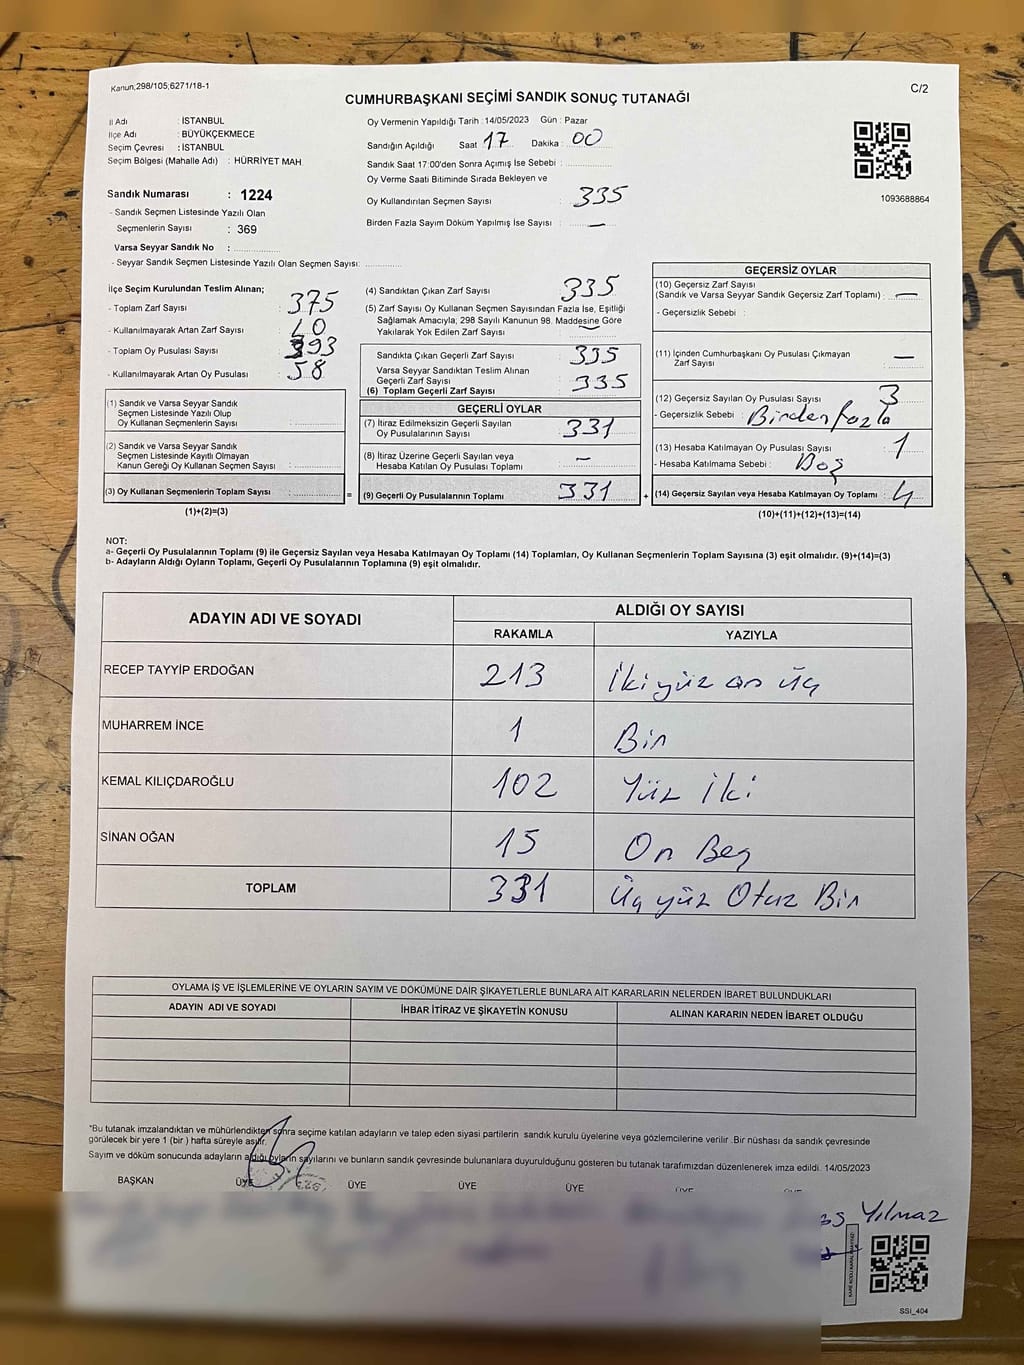 Kanun;298/105;6271/18-1
C/2
CUMHURBAŞKANI SEÇİMİ SANDIK SONUÇ TUTANAĞI
İl Adı : İSTANBUL
İlçe Adı : BÜYÜKÇEKMECE
Seçim Çevresi : İSTANBUL
Seçim Bölgesi (Mahalle Adı) : HÜRRİYET MAH.
Sandık Numarası : 1224
- Sandık Seçmen Listesinde Yazılı Olan
Seçmenlerin Sayısı : 369
Varsa Seyyar Sandık No :
- Seyyar Sandık Seçmen Listesinde Yazılı Olan Seçmen Sayısı:
Oy Vermenin Yapıldığı Tarih : 14/05/2023 Gün : Pazar
Sandığın Açıldığı Saat 17 Dakika : 00
Sandık Saat 17:00'den Sonra Açımış İse Sebebi :
Oy Verme Saati Bitiminde Sırada Bekleyen ve
Oy Kullandırılan Seçmen Sayısı : 335
Birden Fazla Sayım Döküm Yapılmış İse Sayısı : —
1093688864
İlçe Seçim Kurulundan Teslim Alınan;
- Toplam Zarf Sayısı : 375
- Kullanılmayarak Artan Zarf Sayısı : 40
- Toplam Oy Pusulası Sayısı : 393
- Kullanılmayarak Artan Oy Pusulası : 58
(1) Sandık ve Varsa Seyyar Sandık
Seçmen Listesinde Yazılı Olup
Oy Kullanan Seçmenlerin Sayısı :
(2) Sandık ve Varsa Seyyar Sandık
Seçmen Listesinde Kayıtlı Olmayan
Kanun Gereği Oy Kullanan Seçmen Sayısı :
(3) Oy Kullanan Seçmenlerin Toplam Sayısı :
(1)+(2)=(3)
(4) Sandıktan Çıkan Zarf Sayısı : 335
(5) Zarf Sayısı Oy Kullanan Seçmen Sayısından Fazla İse, Eşitliği
Sağlamak Amacıyla; 298 Sayılı Kanunun 98. Maddesine Göre
Yakılarak Yok Edilen Zarf Sayısı : —
Sandıkta Çıkan Geçerli Zarf Sayısı : 335
Varsa Seyyar Sandıktan Teslim Alınan
Geçerli Zarf Sayısı
(6) Toplam Geçerli Zarf Sayısı : 335
GEÇERLİ OYLAR
(7) İtiraz Edilmeksizin Geçerli Sayılan
Oy Pusulalarının Sayısı : 331
(8) İtiraz Üzerine Geçerli Sayılan veya
Hesaba Katılan Oy Pusulası Toplamı : —
= (9) Geçerli Oy Pusulalarının Toplamı : 331
GEÇERSİZ OYLAR
(10) Geçersiz Zarf Sayısı
(Sandık ve Varsa Seyyar Sandık Geçersiz Zarf Toplamı) : —
- Geçersizlik Sebebi :
(11) İçinden Cumhurbaşkanı Oy Pusulası Çıkmayan
Zarf Sayısı : —
(12) Geçersiz Sayılan Oy Pusulası Sayısı : 3
- Geçersizlik Sebebi : Birden fazla
(13) Hesaba Katılmayan Oy Pusulası Sayısı : 1
- Hesaba Katılmama Sebebi : Boş
+ (14) Geçersiz Sayılan veya Hesaba Katılmayan Oy Toplamı : 4
(10)+(11)+(12)+(13)=(14)
NOT:
a- Geçerli Oy Pusulalarının Toplamı (9) ile Geçersiz Sayılan veya Hesaba Katılmayan Oy Toplamı (14) Toplamları, Oy Kullanan Seçmenlerin Toplam Sayısına (3) eşit olmalıdır. (9)+(14)=(3)
b- Adayların Aldığı Oyların Toplamı, Geçerli Oy Pusulalarının Toplamına (9) eşit olmalıdır.
ADAYIN ADI VE SOYADI
ALDIĞI OY SAYISI
RAKAMLA YAZIYLA
RECEP TAYYİP ERDOĞAN 213 İkiyüz on üç
MUHARREM İNCE 1 Bir
KEMAL KILIÇDAROĞLU 102 Yüz İki
SİNAN OĞAN 15 On Beş
TOPLAM 331 Üçyüz Otuz Bir
OYLAMA İŞ VE İŞLEMLERİNE VE OYLARIN SAYIM VE DÖKÜMÜNE DAİR ŞİKAYETLERLE BUNLARA AİT KARARLARIN NELERDEN İBARET BULUNDUKLARI
ADAYIN ADI VE SOYADI İHBAR İTİRAZ VE ŞİKAYETİN KONUSU ALINAN KARARIN NEDEN İBARET OLDUĞU
*Bu tutanak imzalandıktan ve mühürlendikten sonra seçime katılan adayların ve talep eden siyasi partilerin sandık kurulu üyelerine veya gözlemcilerine verilir .Bir nüshası da sandık çevresinde
görülecek bir yere 1 (bir ) hafta süreyle asılır.
Sayım ve döküm sonucunda adayların aldığı oyların sayılarını ve bunların sandık çevresinde bulunanlara duyurulduğunu gösteren bu tutanak tarafımızdan düzenlenerek imza edildi. 14/05/2023
BAŞKAN ÜYE ÜYE ÜYE ÜYE ÜYE ÜYE
Yılmaz
SSİ_404